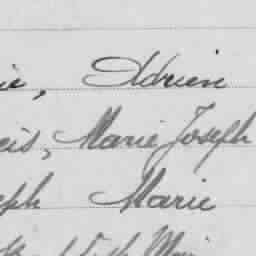 ie, Adrien
cis, Marie Joseph
eph Marie